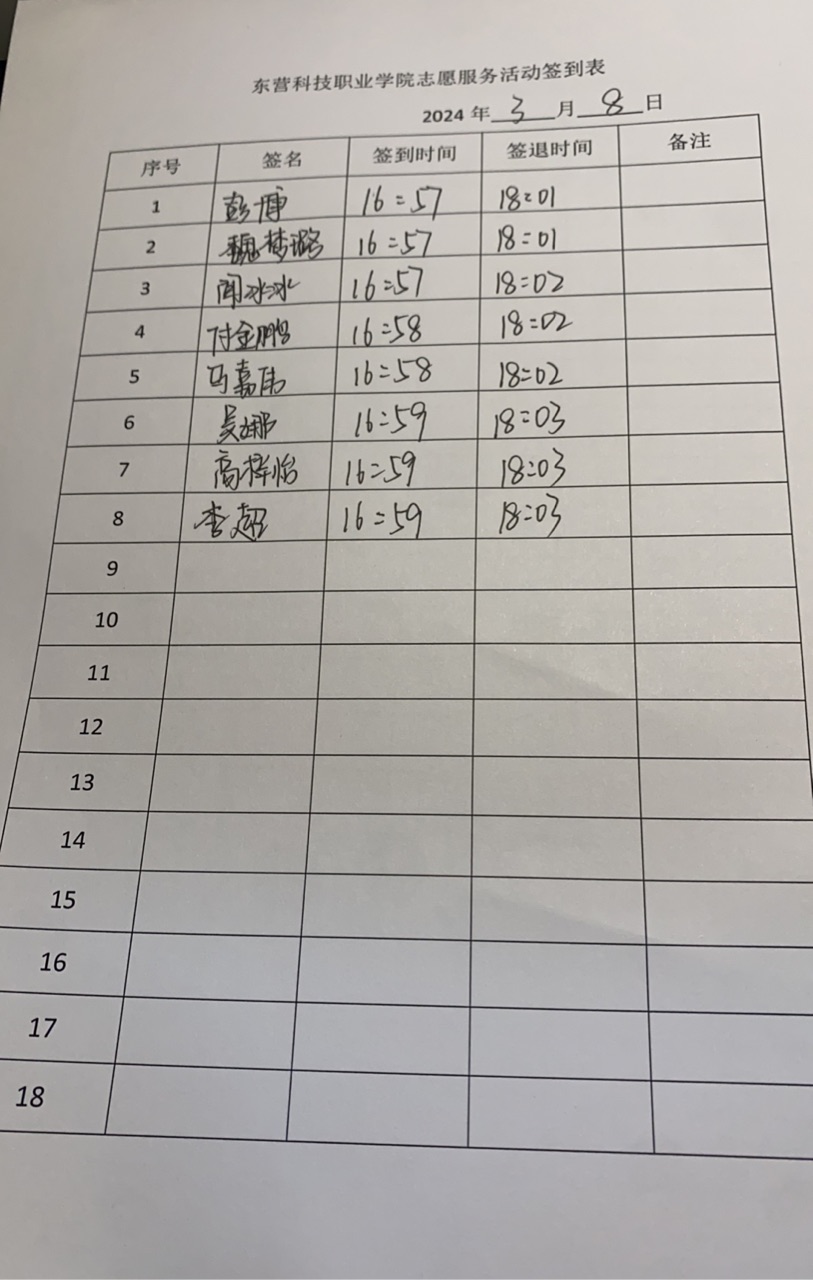 东营科技职业学院志愿服务活动签到表
2024 年 3 月 8 日
序号 签名 签到时间 签退时间 备注
1 彭博 16:57 18:01
2 魏梦璐 16:57 18:01
3 闻冰冰 16:57 18:02
4 付金鹏 16:58 18:02
5 马嘉伟 16:58 18:02
6 吴娜 16:59 18:03
7 高梓怡 16:59 18:03
8 李超 16:59 18:03
9
10
11
12
13
14
15
16
17
18